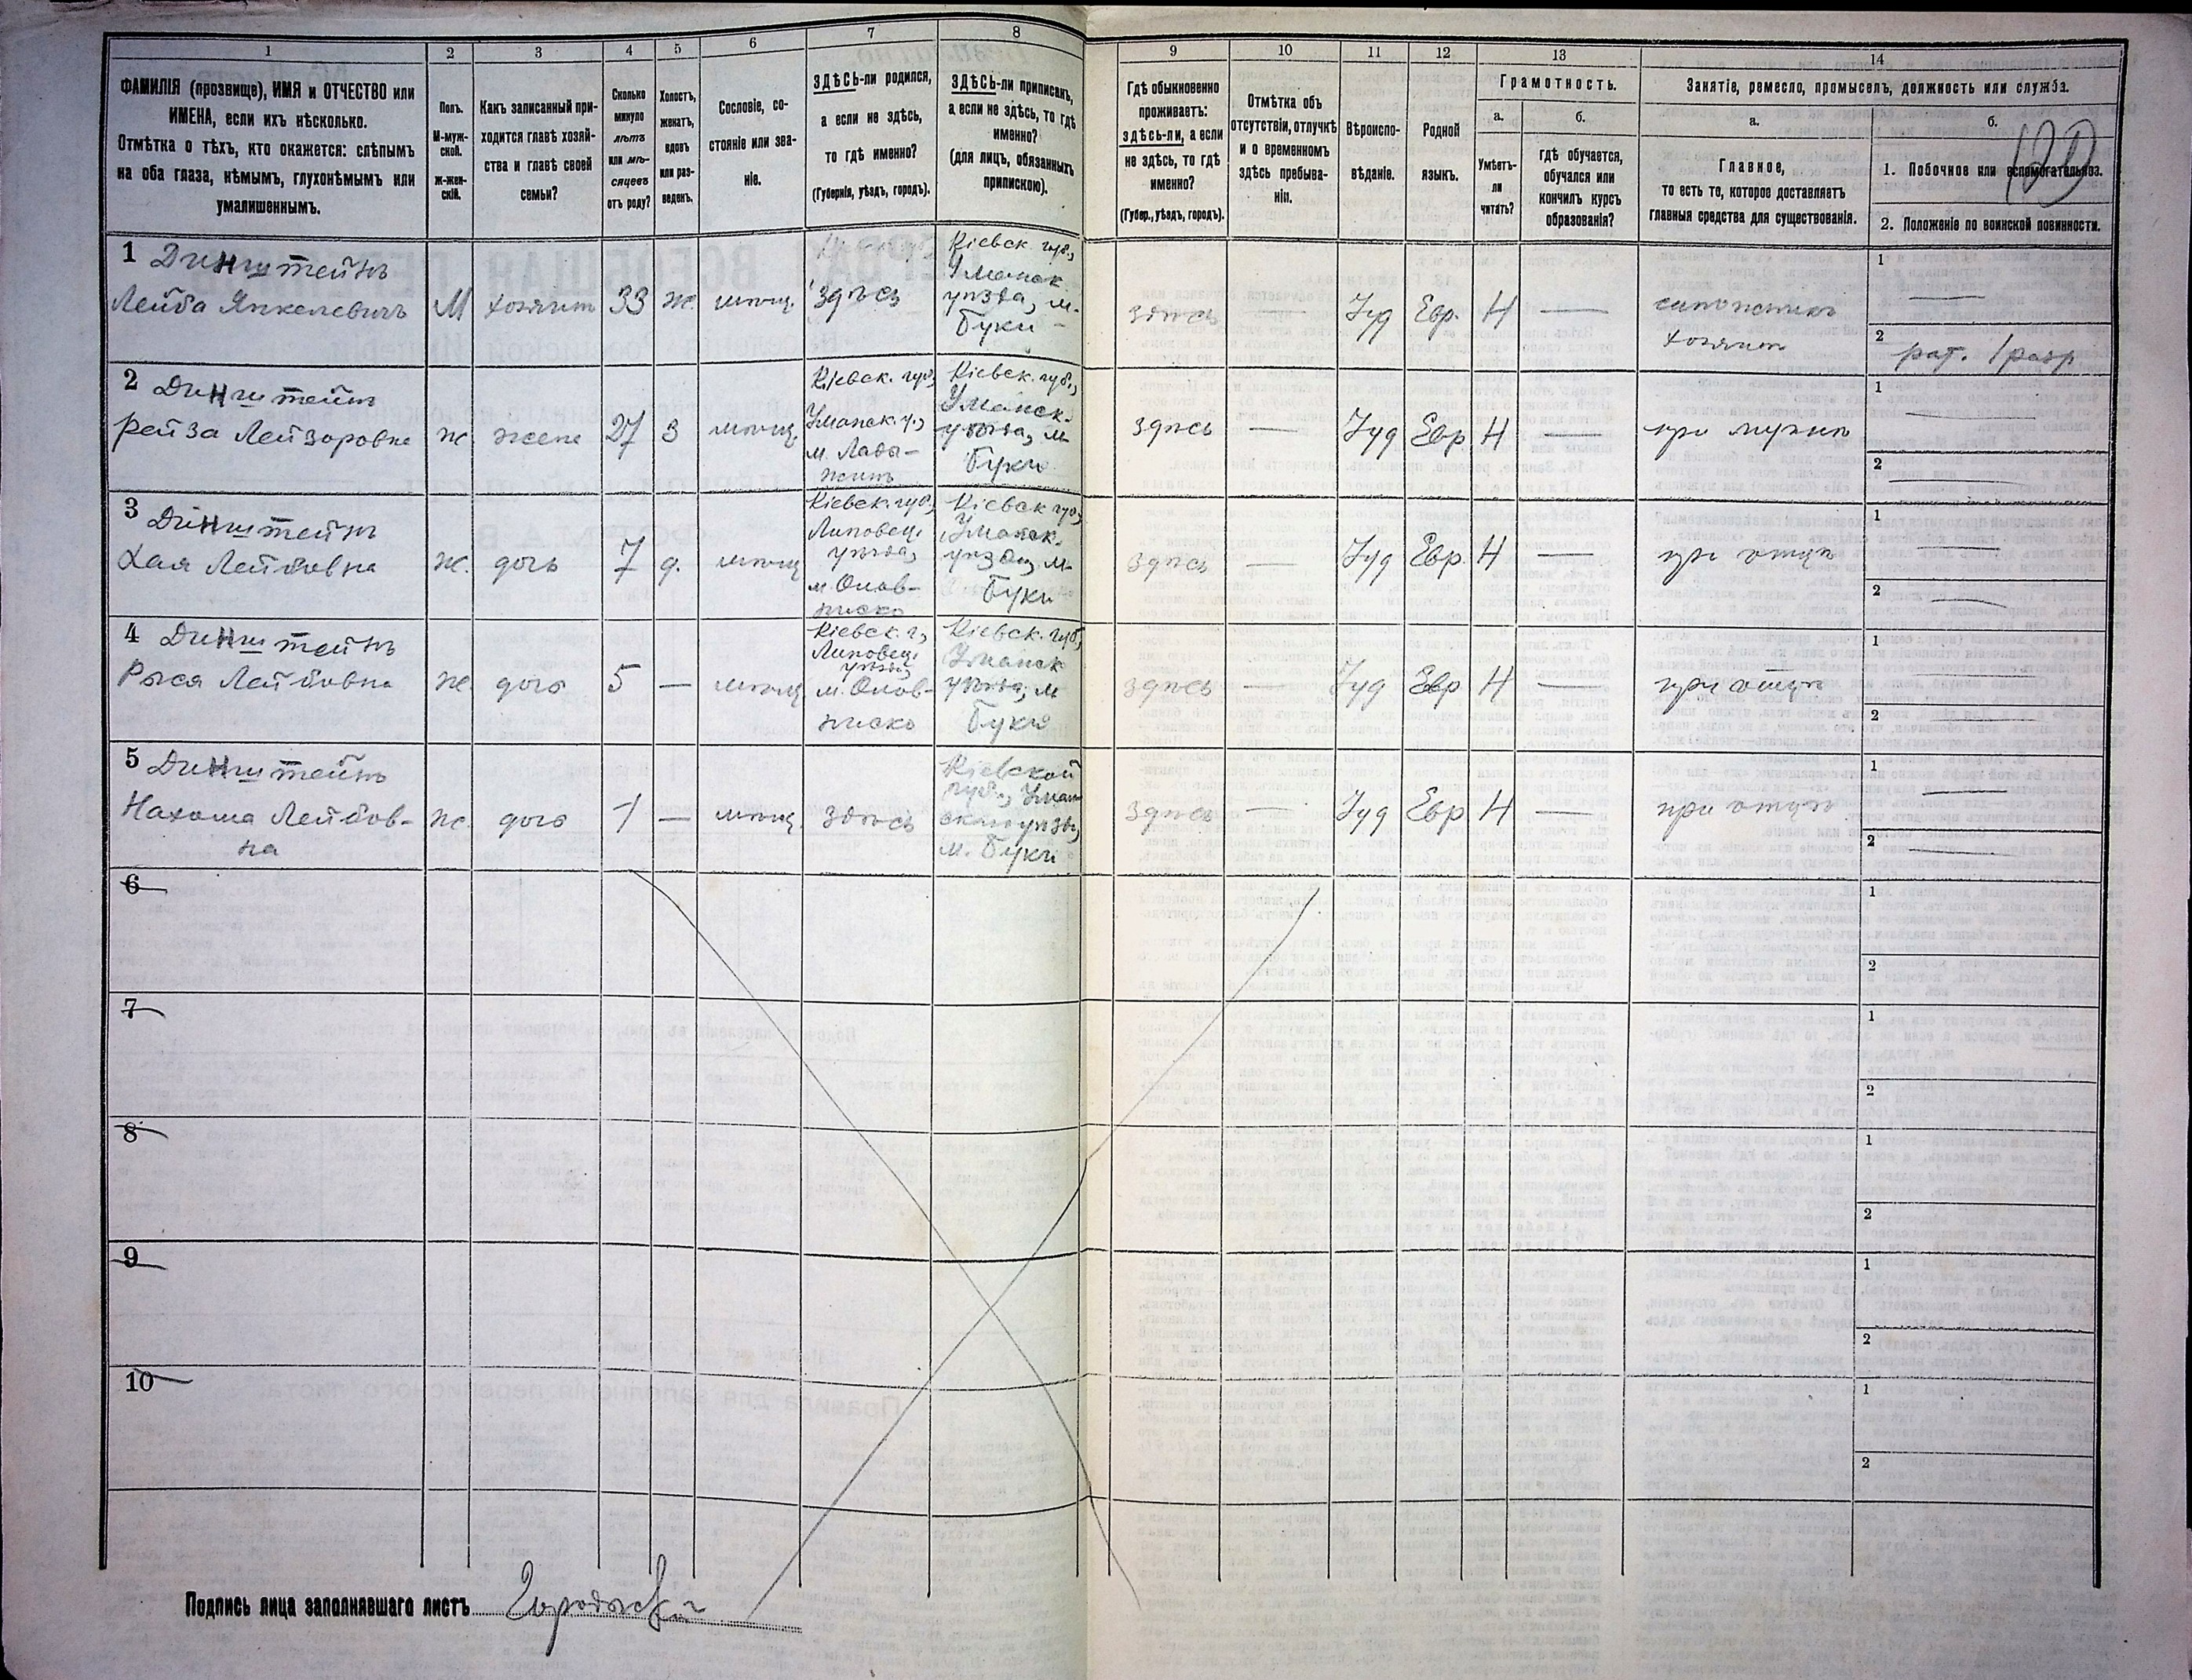 1 2 3 4 5 6 7 8 9 10 11 12 13 14
ФАМИЛІЯ (прозвище), ИМЯ и ОТЧЕСТВО или
ИМЕНА, если ихъ нѣсколько.
Отмѣтка о тѣхъ, кто окажется: слѣпымъ
на оба глаза, нѣмымъ, глухонѣмымъ или
умалишеннымъ.
Полъ.
М-муж-
ской.
ж-жен-
скій.
Какъ записанный при-
ходится главѣ хозяй-
ства и главѣ своей
семьи?
Сколько
минуло
лѣтъ
или мѣ-
сяцевъ
отъ роду?
Холостъ,
женатъ,
вдовъ
или раз-
веденъ.
Сословіе, со-
стояніе или зва-
ніе.
ЗДѢСЬ-ли родился,
а если не здѣсь,
то гдѣ именно?
(Губернія, уѣздъ, городъ).
ЗДѢСЬ-ли приписанъ,
а если не здѣсь, то гдѣ
именно?
(для лицъ, обязанныхъ
припискою).
Гдѣ обыкновенно
проживаетъ:
здѣсь-ли, а если
не здѣсь, то гдѣ
именно?
(Губер., уѣздъ, городъ).
Отмѣтка объ
отсутствіи, отлучкѣ
и о временномъ
здѣсь пребыва-
ніи.
Вѣроиспо-
вѣданіе.
Родной
языкъ.
Грамотность.
а.
Умѣетъ-
ли
читать?
б.
гдѣ обучается,
обучался или
кончилъ курсъ
образованія?
Занятіе, ремесло, промыселъ, должность или служба.
а.
Главное,
то есть то, которое доставляетъ
главныя средства для существованія.
б.
1. Побочное или вспомогательное.
2. Положеніе по воинской повинности.
1 Динштейнъ
Лейба Янкелевичъ
М
хозяинъ
33
ж.
мѣщ.
здѣсь
Кіевск. губ.,
Уманск.
уѣзда, м.
Буки
здѣсь
—
Іуд
Евр.
Н
—
сапожникъ
хозяинъ
1
—
2
рат. 1 разр
2 Динштейнъ
Рейза Лейзоровна
ж
жена
27
З
мѣщ.
Кіевск. губ.,
Уманск. у.,
м. Лады-
жинъ
Кіевск. губ.,
Уманск.
уѣзда, м.
Буки
здѣсь
—
Іуд
Евр
Н
—
при мужѣ
1
—
2
—
3 Динштейнъ
Хая Лейбовна
ж.
дочь
7
д.
мѣщ
Кіевск. губ.,
Липовец.
уѣзда,
Кіевск губ,
Уманск.
уѣзда, м.
Буки
здѣсь
—
Іуд
Евр.
Н
—
при отцѣ
1
—
2
—
4 Динштейнъ
Рыся Лейбовна
ж.
дочь
5
—
мѣщ
Кіевск. г.,
Липовец.
уѣзда,
Кіевск. губ,
Уманск
уѣзда, м
Буки
здѣсь
—
Іуд
Евр
Н
—
при отцѣ
1
—
2
—
5 Динштейнъ
Нахома Лейбов-
на
ж.
дочь
1
—
мѣщ.
здѣсь
Кіевской
губ., Уман
скаго уѣзда,
м. Буки
здѣсь
—
Іуд
Евр
Н
—
при отцѣ
1
—
2
—
6
1
2
7
1
2
8
1
2
9
1
2
10
1
2
Подпись лица заполнявшаго листъ